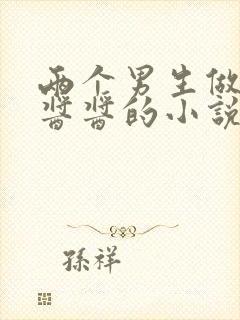 两个男生做
酱酱的小说
孙祥